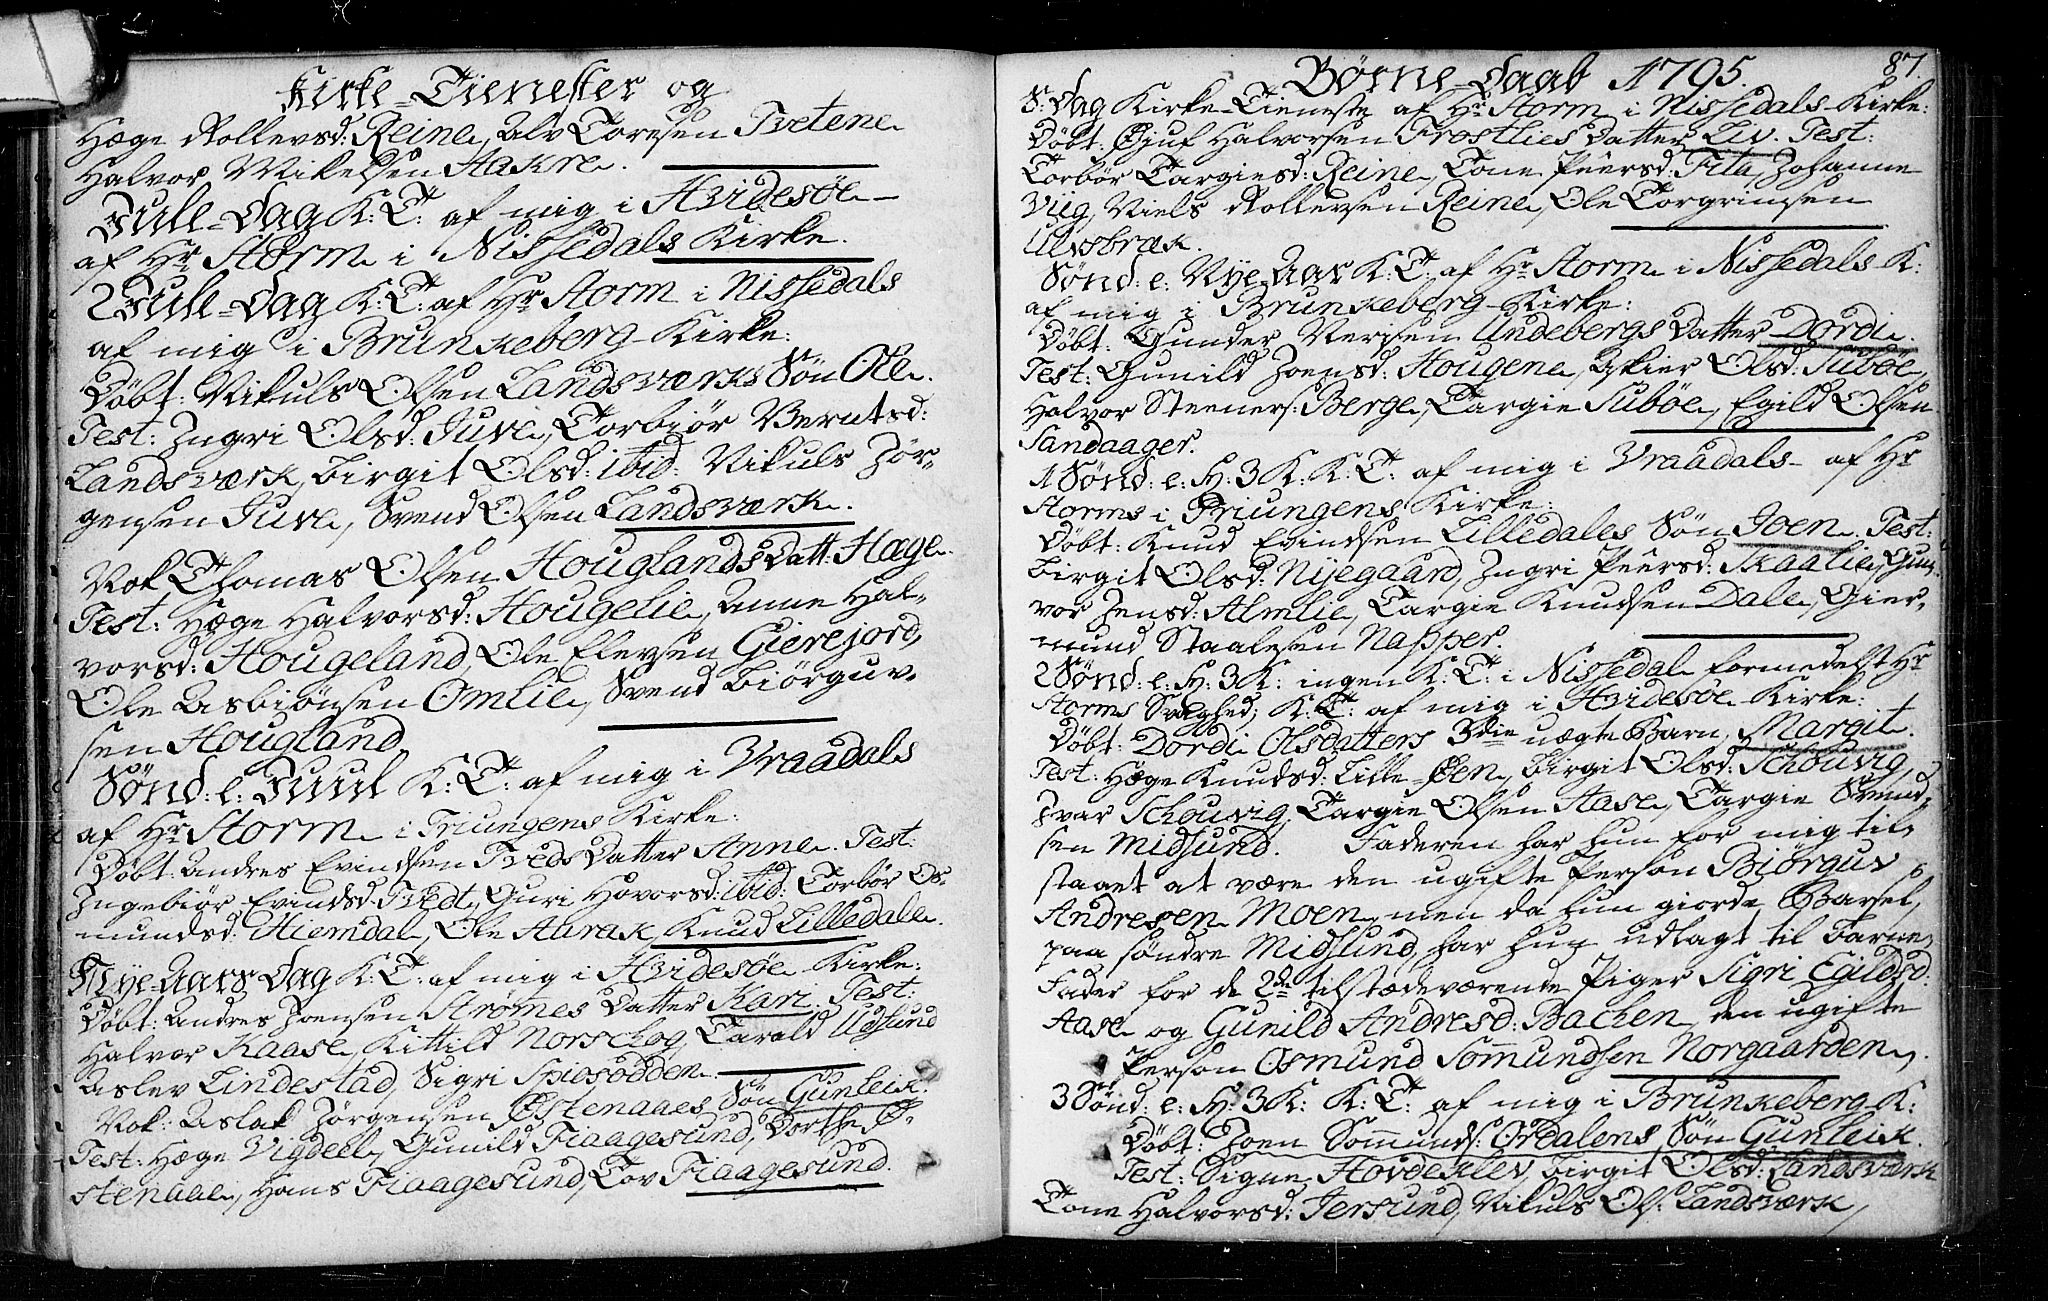 Kirke-Tienester og
Hæge Rollevsd: Reine, Alv Toresen Tvetene
Halvor Mikelsen Aakre.
Jule-Dag K: T: af mig i Hvidesöe
af Hr Storm i Nissedals Kirke.
2 Jule-Dag K: T: af Hr Storm i Nissedals
af mig i Brunkeberg-Kirke:
Döbt: Nikuls Olsen Landsværks Søn Ole.
Test: Ingri Olsd: Juve, Torbiör Berntsd:
Landsværk, Birgit Olsd: ibid: Nikuls Jör-
gensen Juve, Svend Olsen Landsværk.
Nok Thomas Olsen Houglands Datt: Hæge.
Test: Hæge Halvorsd: Hougelie, Anne Hal-
vorsd: Hougeland, Ole Elevsen Gierejord,
Ole Asbiönsen Omlie, Svend Biörguv-
sen Hougland
Sönd: e: Juul K: T: af mig i Vraadals
af Hr Storm i Triungens Kirke:
Döbt: Andres Evindsen Tveds Datter Anne. Test:
Ingebiör Evindsd: Tvedt, Guri Hovorsd: ibid: Torbör Os-
mundsd: Hiemdal, Ole Aurak, Knud Lilledale.
Nye-Aars Dag K: T: af mig i Hvidesöe Kirke:
Döbt: Andres Joensen Strömes Datter Kari. Test:
Halvor Kaase, Kittild Norskog, Tarald Ugsund
Aslev Lindestad, Sigri Spiosödden.
Nok: Aslak Jörgensen Östenaaes Søn Gunleik.
Test: Hæge Vigdeel, Gunild Fiaagesund, Dorthe Ö-
stenaae, Hans Fiaagesund, Tov Fiaagesund.
Börne-Daab 1795. 87
S: Dag Kirke-Tieneste af Hr Storm i Nissedals-Kirke:
Döbt: Giuf Halvorsen Frostlies Datter Liv. Test:
Torbör Targiesd: Reine, Tone Peersd: Fita, Johanne
Vug, Niels Rollevsen Reine, Ole Torgrimsen
Ulvsbræk.
Sönd: e: Nye Aar K: T: af Hr Storm i Nissedals K:
af mig i Brunkeberg-Kirke:
Döbt: Gunder Nersen Undebergs Datter Dordi.
Test: Gunild Joensd: Hougene, Asier Olsd: Tuböe,
Halvor Steeners: Berge, Targie Tuböe, Egild Olsen
Sandaager.
1 Sönd: e: H: 3 K: K: T: af mig i Vraadals- af Hr
Storms i Triungens Kirke:
Döbt: Knud Evindsen Lilledales Søn Joen. Test:
Birgit Olsd: Nyegaard, Ingri Peersd: Skaalie, Gun-
vor Jensd: Almlie, Targie Knudsen Dale, Gier-
mund Staalesen Napper.
2 Sönd: e: H: 3 K: ingen K: T: i Nissedal formedelst Hr
Storms Svaghed; K: T: af mig i Hvidesöe Kirke:
Döbt: Dordi Olsdatters 3die uægte Barn, Margit.
Test: Hæge Knudsd: Lille-Öen, Birgit Olsd: Schouvig,
Ivar Schouvig, Targie Olsen Aase, Targie Svend-
sen Midsund. Faderen har hun for mig til-
staaet at være den ugifte Person Biörguv
Andresen Moen, men da hun giorde Barsel,
paa søndre Midsund, har hun udlagt til Barne-
Fader for de 2de tilstædeværende Piger Sigri Egildsd:
Aase og Gunild Andresd: Bachen, den ugifte
Person Osmund Sommundsen Norgaarden.
3 Sönd: e: H: 3 K: K: T: af mig i Brunkeberg K:
Döbt: Joen Sommunds: Oredalens Søn Gunleik.
Test: Signe Hovdeklev, Birgit Olsd: Landsværk
Tone Halvorsd: Jersund, Nikuls Ols: Landsværk,